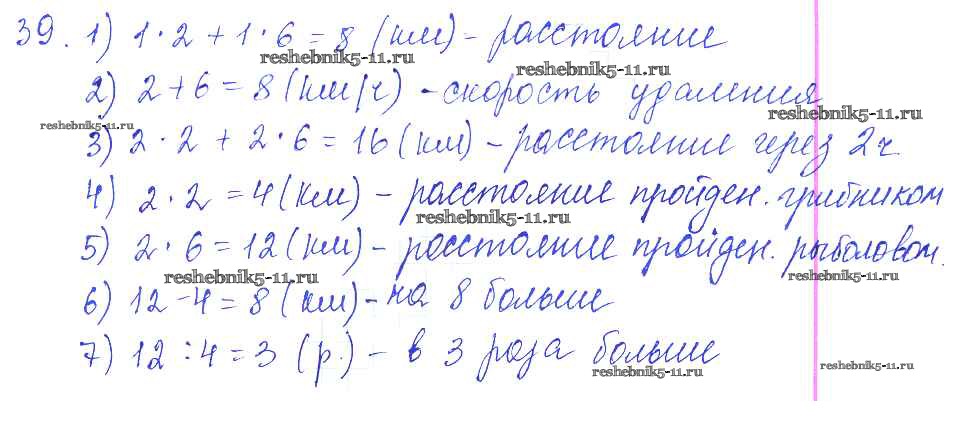 39. 1) 1·2 + 1·6 = 8 (км) – расстояние
reshebnik5-11.ru
reshebnik5-11.ru
2) 2+6 = 8 (км/ч) – скорость удаления
reshebnik5-11.ru
reshebnik5-11.ru
3) 2·2 + 2·6 = 16 (км) – расстояние через 2ч
4) 2·2 = 4 (км) – расстояние пройден. грибником
reshebnik5-11.ru
5) 2·6 = 12 (км) – расстояние пройден. рыболовом.
reshebnik5-11.ru
reshebnik5-11.ru
6) 12 - 4 = 8 (км) – на 8 больше
7) 12 : 4 = 3 (р.) – в 3 раза больше
reshebnik5-11.ru
reshebnik5-11.ru